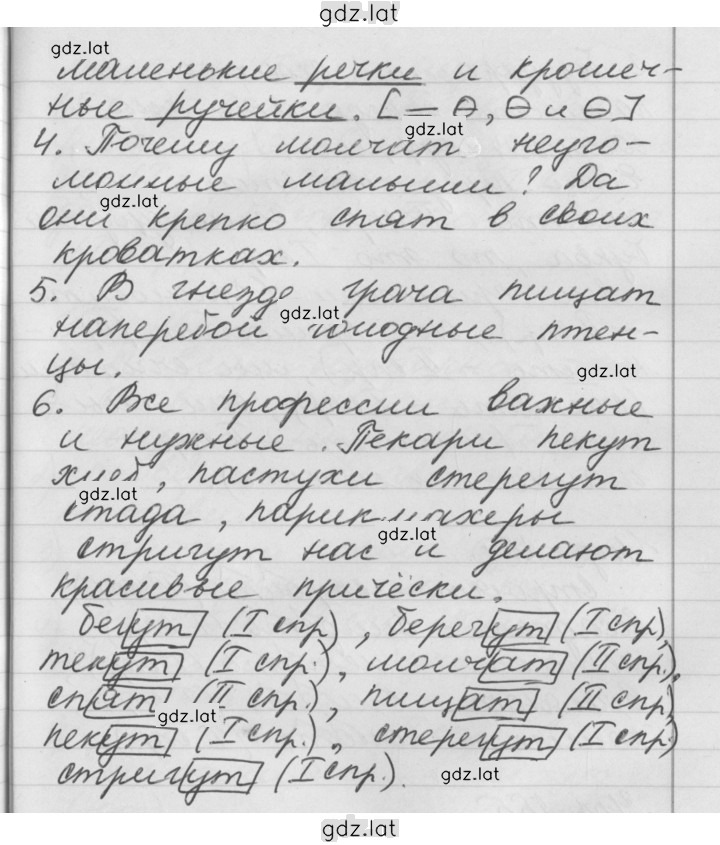 gdz.lat
gdz.lat
маленькие речки и крошеч-
ные ручейки. [= О, О и О]
gdz.lat
4. Почему молчат неуго-
монные малыши? Да
gdz.lat
они крепко спят в своих
кроватках.
5. В гнезде грача пищат
gdz.lat
наперебой голодные птен-
цы.
gdz.lat
6. Все профессии важные
и нужные. Пекари пекут
хлеб, пастухи стерегут
gdz.lat
стада, парикмахеры
gdz.lat
стригут нас и делают
красивые прически.
бегут (I спр.), берегут (I спр),
текут (I спр.), молчат (II спр.),
спят (II спр.), пищат (II спр)
gdz.lat
пекут (I спр.), стерегут (I спр)
стригут (I спр.).
gdz.lat
gdz.lat